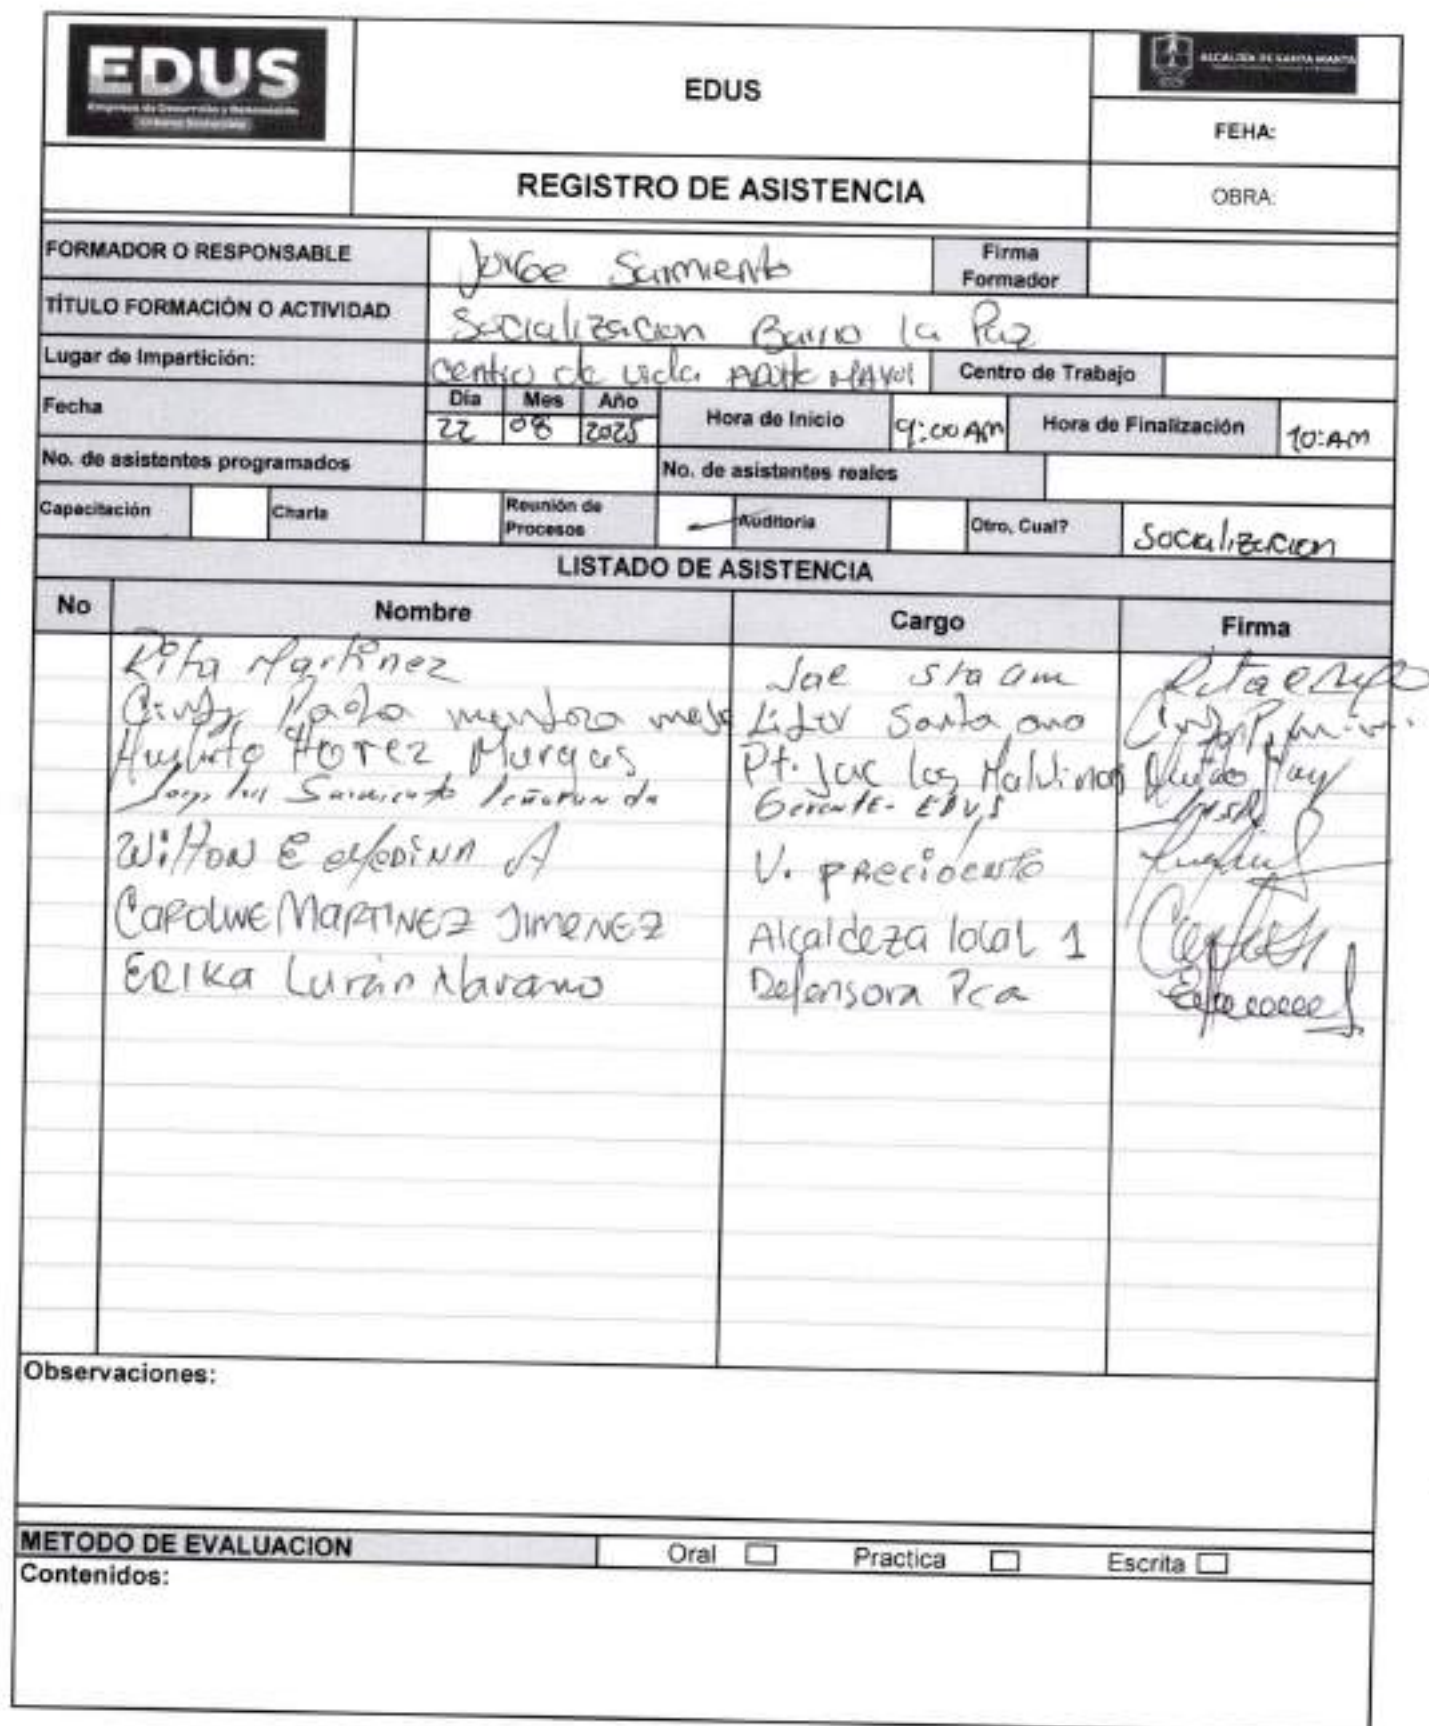 EDUS
Empresa de Desarrollo y Renovación
Urbana Sostenible
EDUS
ALCALDÍA DE SANTA MARTA
FEHA:
REGISTRO DE ASISTENCIA
OBRA:
FORMADOR O RESPONSABLE Jorge Sarmiento Firma Formador
TÍTULO FORMACIÓN O ACTIVIDAD Socializacion Barrio la Paz
Lugar de Impartición: Centro de vida Adulto Mayor Centro de Trabajo
Fecha Día Mes Año Hora de Inicio 9:00 AM Hora de Finalización 10:AM
22 08 2025
No. de asistentes programados No. de asistentes reales
Capacitación Charla Reunión de Procesos Auditoria Otro, Cual? Socializacion
LISTADO DE ASISTENCIA
No Nombre Cargo Firma
Rita Martinez Jac sta
Cindy Paola mendoza Lider Santa ana
Humberto Florez Murgas Pt. Jac las Malvinas
Jorge Luis Sarmiento Peñaranda Gerente - EDUS
Wilton E Medina A V. preciocente
Caroline Martinez Jimenez Alcaldeza local 1
Erika Lurán Navarro Defensora Pca
Observaciones:
METODO DE EVALUACION Oral Practica Escrita
Contenidos: